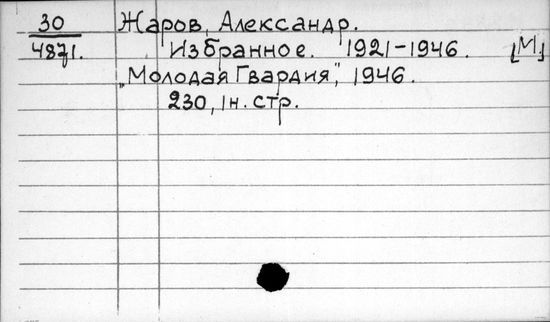 30 Жаров, Александр.
4871. Избранное. 1921-1946. [М]
„Молодая Гвардия", 1946.
230, 1н. стр.